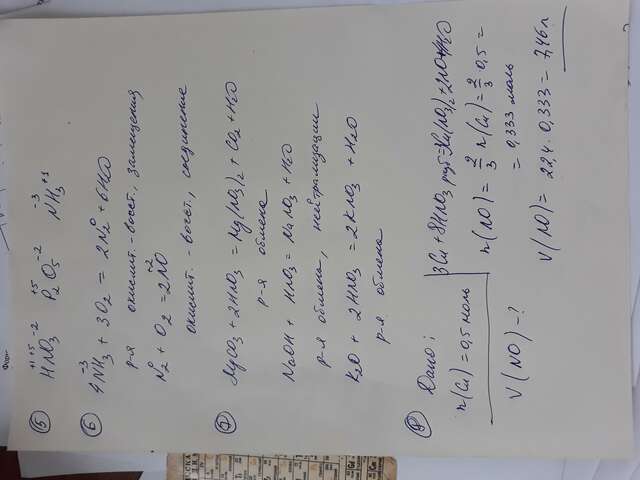 ⑤ H⁺¹N⁺⁵O₃⁻² P₂⁺⁵O₅⁻² N⁻³H₃⁺¹
⑥ 4N⁻³H₃ + 3O₂ = 2N₂⁰ + 6H₂O
р-я окислит.-восст., замещения
N₂⁰ + O₂ = 2NO⁻²
окислит.-восст., соединение
⑦ MgCO₃ + 2HNO₃ = Mg(NO₃)₂ + CO₂ + H₂O
р-я обмена
NaOH + HNO₃ = NaNO₃ + H₂O
р-я обмена, нейтрализации
K₂O + 2HNO₃ = 2KNO₃ + H₂O
р-я обмена
⑧ Дано:
n(Cu) = 0,5 моль
V(NO) - ?
3Cu + 8HNO₃ разб = 3Cu(NO₃)₂ + 2NO + 4H₂O
n(NO) = 2/3 n(Cu) = 2/3 · 0,5 =
= 0,333 моль
V(NO) = 22,4 · 0,333 = 7,46 л